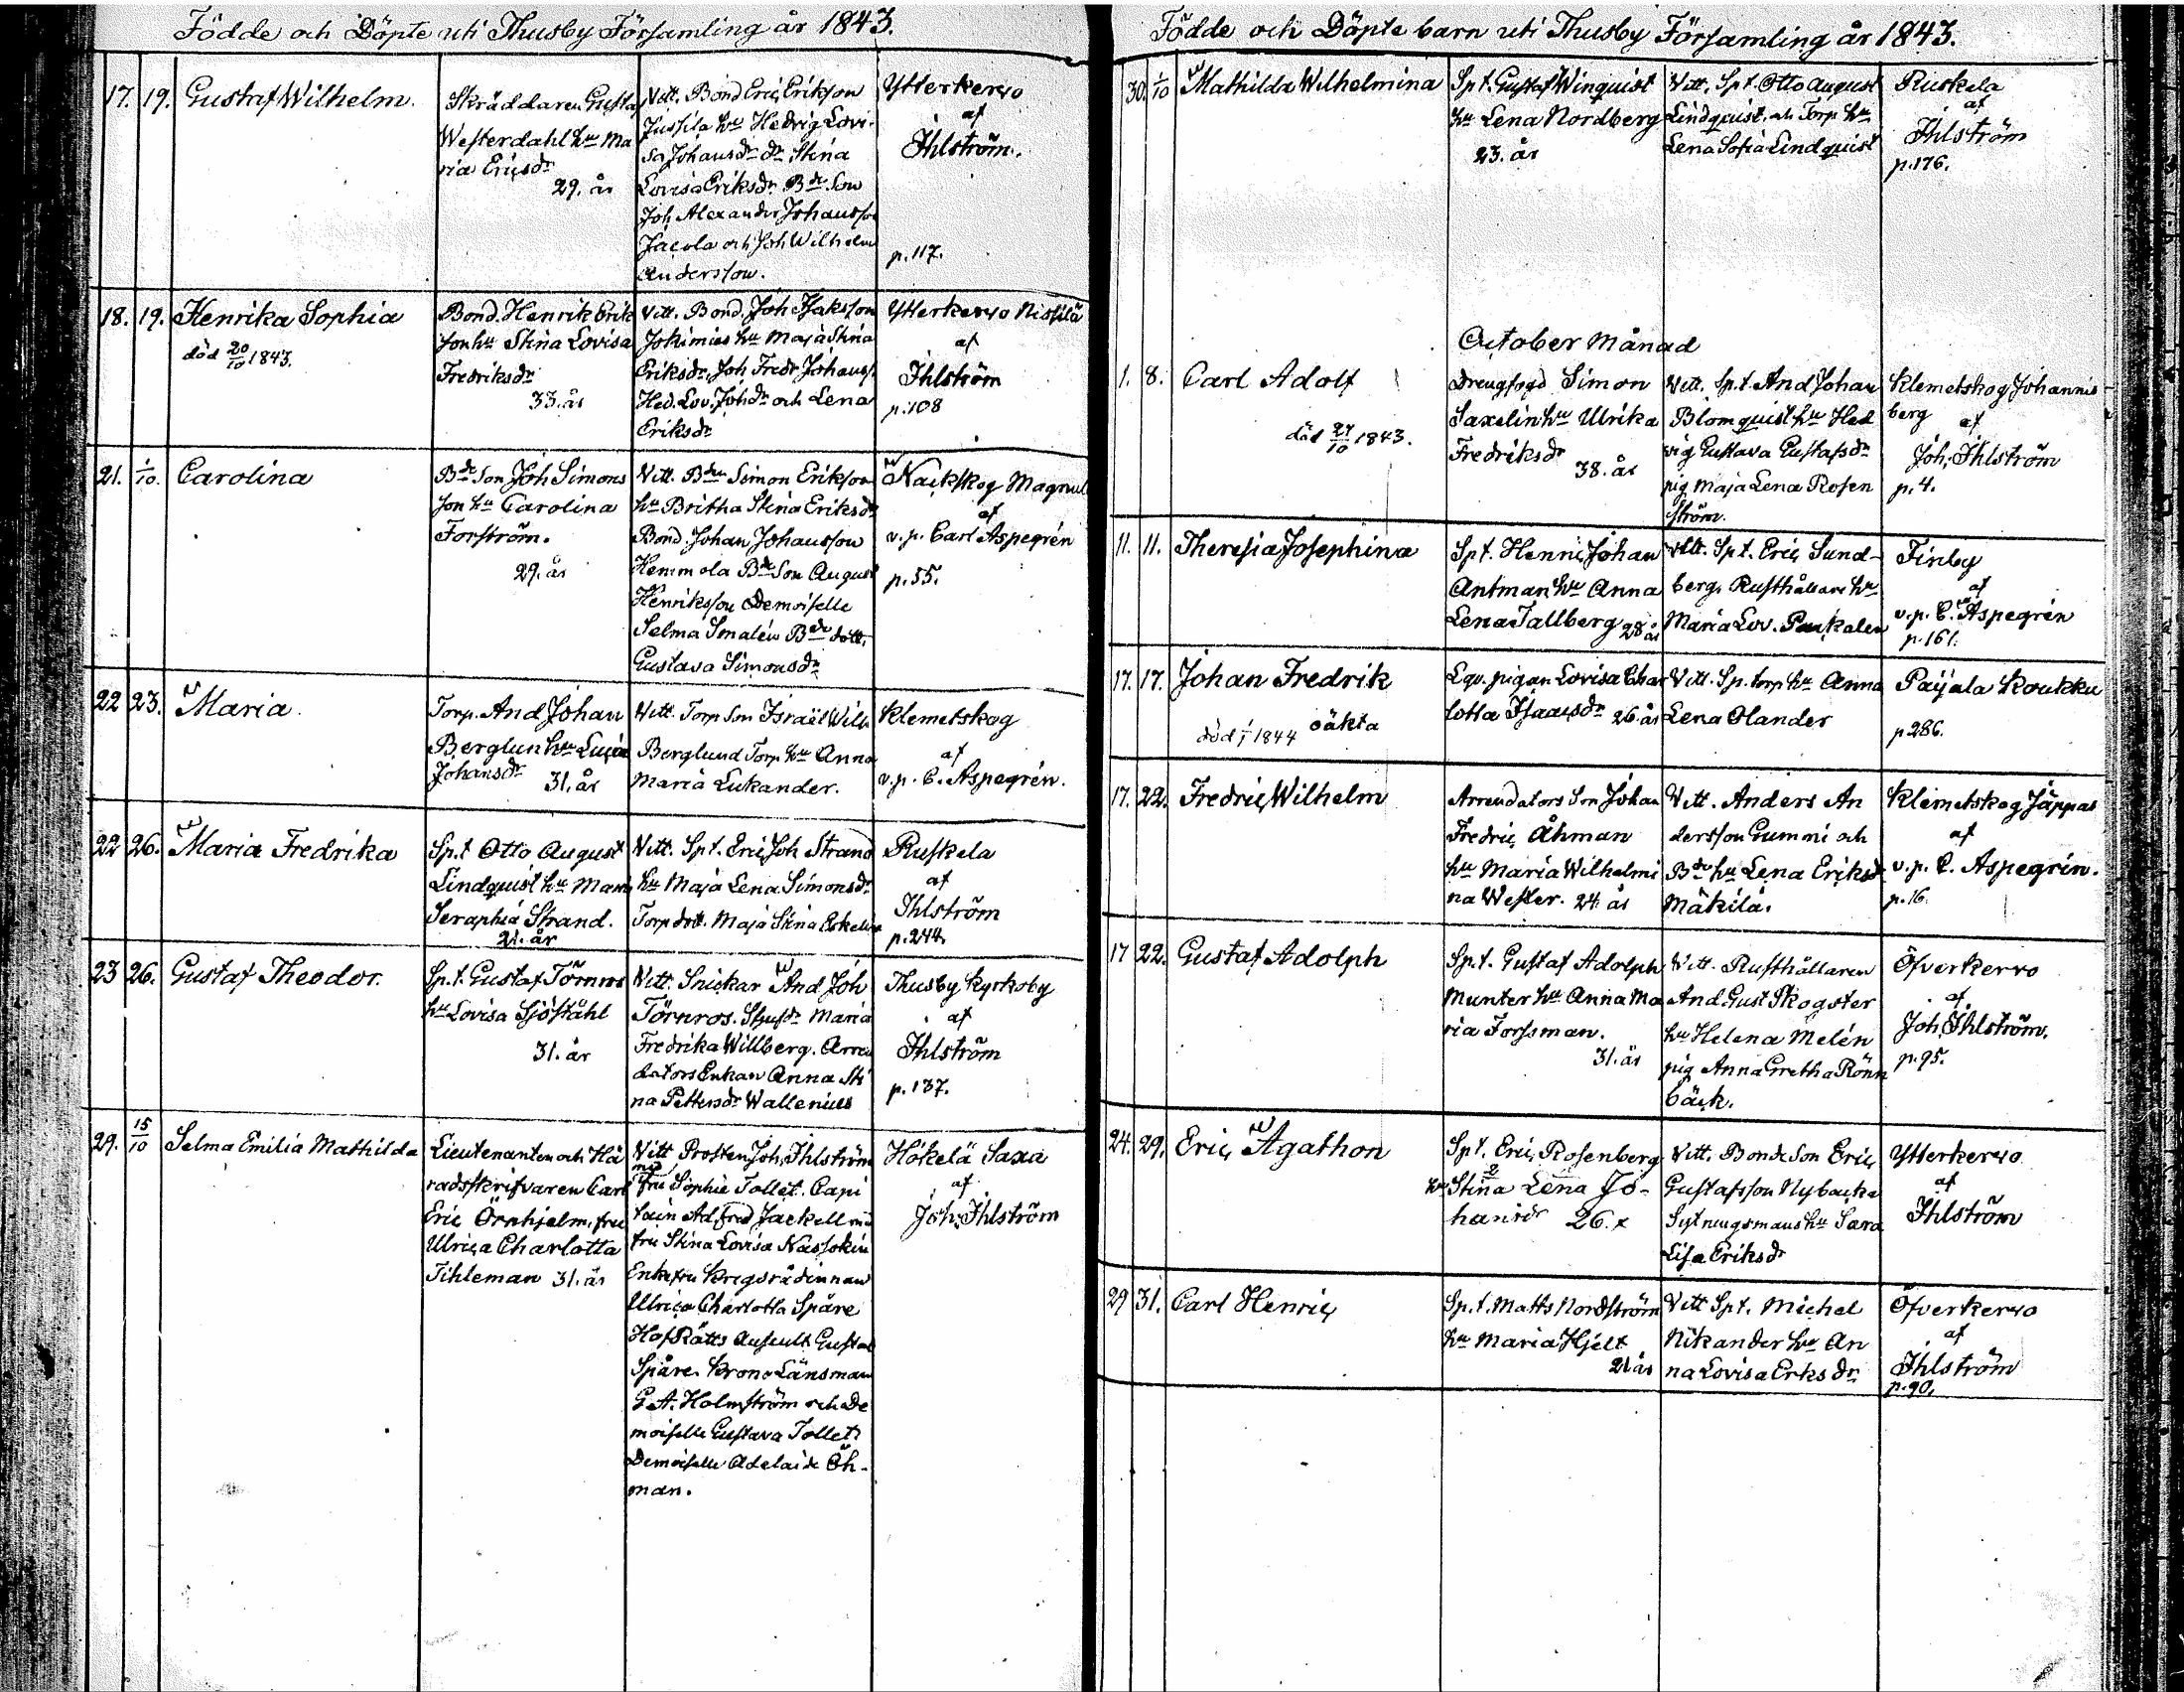 Födde och Döpte uti Thusby Församling år 1843.
17. 19. Gustaf Wilhelm.
Skräddaren Gustaf
Westerdahl hu Ma
ria Ericsdr
29. år
Vitt. Bond Eric Erikson
Jussila hu Hedvig Lovi-
sa Johansdr dr Stina
Lovisa Eriksdr Bde Son
Joh Alexander Johansson
Jacola och Joh Wilhelm
Andersson.
Ytterkervo
af
Ihlström.
p. 117.
18. 19. Henrika Sophia
död 20/10 1843.
Bond. Henrik Erik
son hu Stina Lovisa
Fredriksdr
33. år
Vitt. Bond. Joh Isaksson
Jokimies hu Maja Stina
Eriksdr, Joh Fredr Johanss.
Hed. Lov. Johdr och Lena
Eriksdr
Ytterkervo Nissilä
af
Ihlström
p. 108
21. 1/10. Carolina
Bde Son Joh Simons
son hu Carolina
Forström.
29. år
Vitt. Bden Simon Erikson
hu Britha Stina Eriksdr
Bond. Johan Johansson
Hemmola Bde Son August
Henriksson Demoiselle
Selma Smalén Bde dott.
Gustava Simonsdr
Nackskog Magnul
af
v.p. Carl Aspegrén
p. 55.
22 23. Maria.
Torp. And Johan
Berglun hu Lucia
Johansdr
31. år
Vitt. Torp Son Israël Wilh
Berglund Torp hu Anna
Maria Lukander.
Klemetskog
af
v.p. C. Aspegrén.
22 26. Maria Fredrika
Sp.t Otto August
Lindquist hu Mari
Seraphia Strand.
21. år
Vitt. Spt. Eric Joh Strand
hu Maja Lena Simonsdr
Torp dott. Maja Stina Eskelin
Ruskela
af
Ihlström
p. 244.
23 26. Gustaf Theodor.
Sp.t. Gustaf Törnros
hu Lovisa Sjöståhl
31. år
Vitt. Snickar And Joh
Törnros. Stjufdr Maria
Fredrika Willberg. Arren
dators Enkan Anna Sti
na Pettersdr Wallenius
Thusby Kyrkoby
af
Ihlström
p. 137.
29. 15/10 Selma Emilia Mathilda
Lieutenanten och Hä
radsskrifvaren Carl
Eric Örnhjelm, fru
Ulrica Charlotta
Tihleman 31. år
Vitt Prosten Joh. Ihlström
med fru Sophie Tollet. Capi
tain Ad Fred Jackell med
fru Stina Lovisa Nassokin
Enkefru Krigsrådinnan
Ulrica Charlotta Spåre
Hof Rätts Auscult Gustaf
Spåre. Krono Länsman
G A. Holmström och De
moiselle Gustava Tollet
Demoiselle Adelaide Öh-
man.
Hökelä Saxa
af
Joh. Ihlström
Födde och Döpte barn uti Thusby Församling år 1843.
30. 1/10 Mathilda Wilhelmina
Spt. Gustaf Winquist
hu Lena Nordberg
23. år
Vitt. Spt. Otto August
Lindquist. och Torp hu
Lena Sofia Lindquist
Ruskela
af
Ihlström
p. 176.
October Månad
1. 8. Carl Adolf
död 27/10 1843.
Drengfogd Simon
Saxelin hu Ulrika
Fredriksdr
38. år
Vitt. Sp.t. And Johan
Blomquist hu Hed
vig Gustava Gustafsdr
pig Maja Lena Rosen
ström.
Klemetskog Johannis
berg
af
Joh. Ihlström
p. 4.
11. 11. Theresia Josephina
Spt. Henric Johan
Antman hu Anna
Lena Tallberg 28 år
Vitt. Spt. Eric Sund-
berg, Rusthållare hu
Maria Lov. Packalen
Finby
af
v.p. C. Aspegrén
p. 161.
17. 17. Johan Fredrik
död 1844
oäkta
Eqv. pigan Lovisa Char
lotta Isaacsdr 26. år
Vitt. Sp. torp hu Anna
Lena Olander
Paijala Koukku
p 286.
17. 22. Fredric Wilhelm
Arrendators Son Johan
Fredric Åhman
hu Maria Wilhelmi
na Wester. 24 år
Vitt. Anders An
dersson Gummi och
Bde hu Lena Eriksdr
Mäkilä.
Klemetskog Jäppas
af
v.p. C. Aspegrén.
p. 16.
17 22. Gustaf Adolph
Sp.t. Gustaf Adolph
Munter hu Anna Ma
ria Forssman.
31. år
Vitt. Rusthållaren
And Gust Skogster
hu Helena Melén
pig Anna Gretha Rönn
bäck.
Öfverkervo
af
Joh. Ihlström.
p. 95.
24. 29. Eric Agathon
Spt. Eric Rosenberg
hu Stina Lena Jo-
hansdr 26.
Vitt. Bonde Son Eric
Gustafsson Nybacka
Sytnugsmans hu Sara
Lisa Eriksdr
Ytterkervo
af
Ihlström
29 31. Carl Henric
Sp.t. Matts Nordström
hu Maria Hjelt
21 år
Vitt Spt. Michel
Nikander hu An
na Lovisa Erksdr
Öfverkervo
af
Ihlström
p. 90.